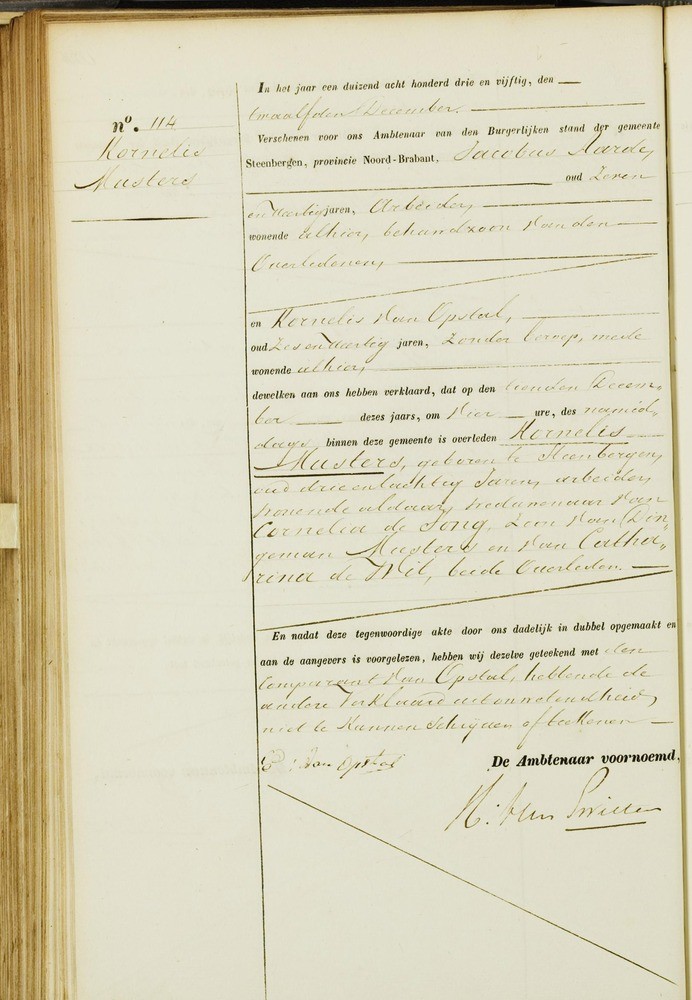 In het jaar een duizend acht honderd drie en vijftig, den
twaalfden December.
Verschenen voor ons Ambtenaar van den Burgerlijken stand der gemeente
Steenbergen, provincie Noord-Brabant, Jacobus Aarden,
oud zeven
en dertig jaren, Arbeider,
wonende alhier, behuwdzoon van den
Overledenen,
en Kornelis van Opstal,
oud Zesendertig jaren, zonder beroep, mede
wonende alhier,
dewelken aan ons hebben verklaard, dat op den tienden Decem-
ber dezes jaars, om Vier ure, des namid-
dags, binnen deze gemeente is overleden Kornelis
Musters, geboren te Steenbergen,
oud drieentachtig Jaren, arbeider,
wonende aldaar, weduwenaar van
Cornelia de Jong, zoon van Din-
geman Musters en van Catha-
rina de Wit, beide Overleden.
En nadat deze tegenwoordige akte door ons dadelijk in dubbel opgemaakt en
aan de aangevers is voorgelezen, hebben wij dezelve geteekend met den
Comparant van Opstal, hebbende de
andere Verklaard uit onnoodendheid
niet te kunnen Schrijven of teekenen
C: van Opstal
De Ambtenaar voornoemd,
n°. 114
Kornelis
Musters